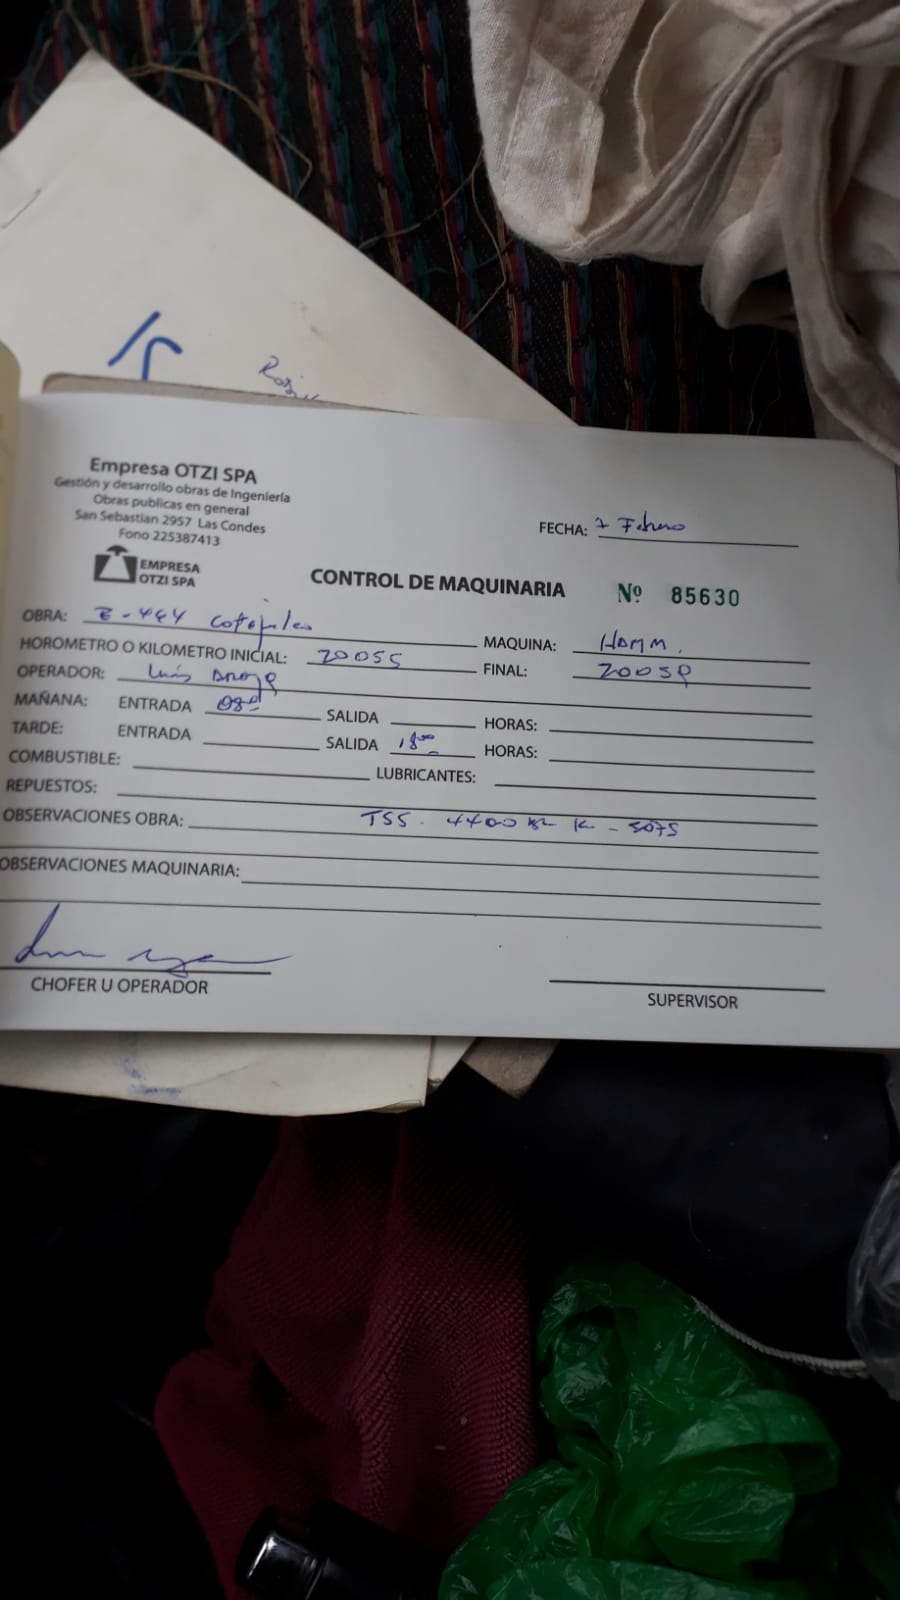 Empresa OTZI SPA
Gestión y desarrollo obras de Ingeniería
Obras publicas en general
San Sebastian 2957 Las Condes
Fono 225387413
EMPRESA
OTZI SPA
FECHA: 7 Febrero
CONTROL DE MAQUINARIA Nº 85630
OBRA: E-444 MAQUINA: HAMM.
HOROMETRO O KILOMETRO INICIAL: 20055 FINAL: 20059
OPERADOR: Luis
MAÑANA: ENTRADA 08:00 SALIDA HORAS:
TARDE: ENTRADA SALIDA 18:00 HORAS:
COMBUSTIBLE: LUBRICANTES:
REPUESTOS:
OBSERVACIONES OBRA: TSS. 4400
OBSERVACIONES MAQUINARIA:
CHOFER U OPERADOR SUPERVISOR